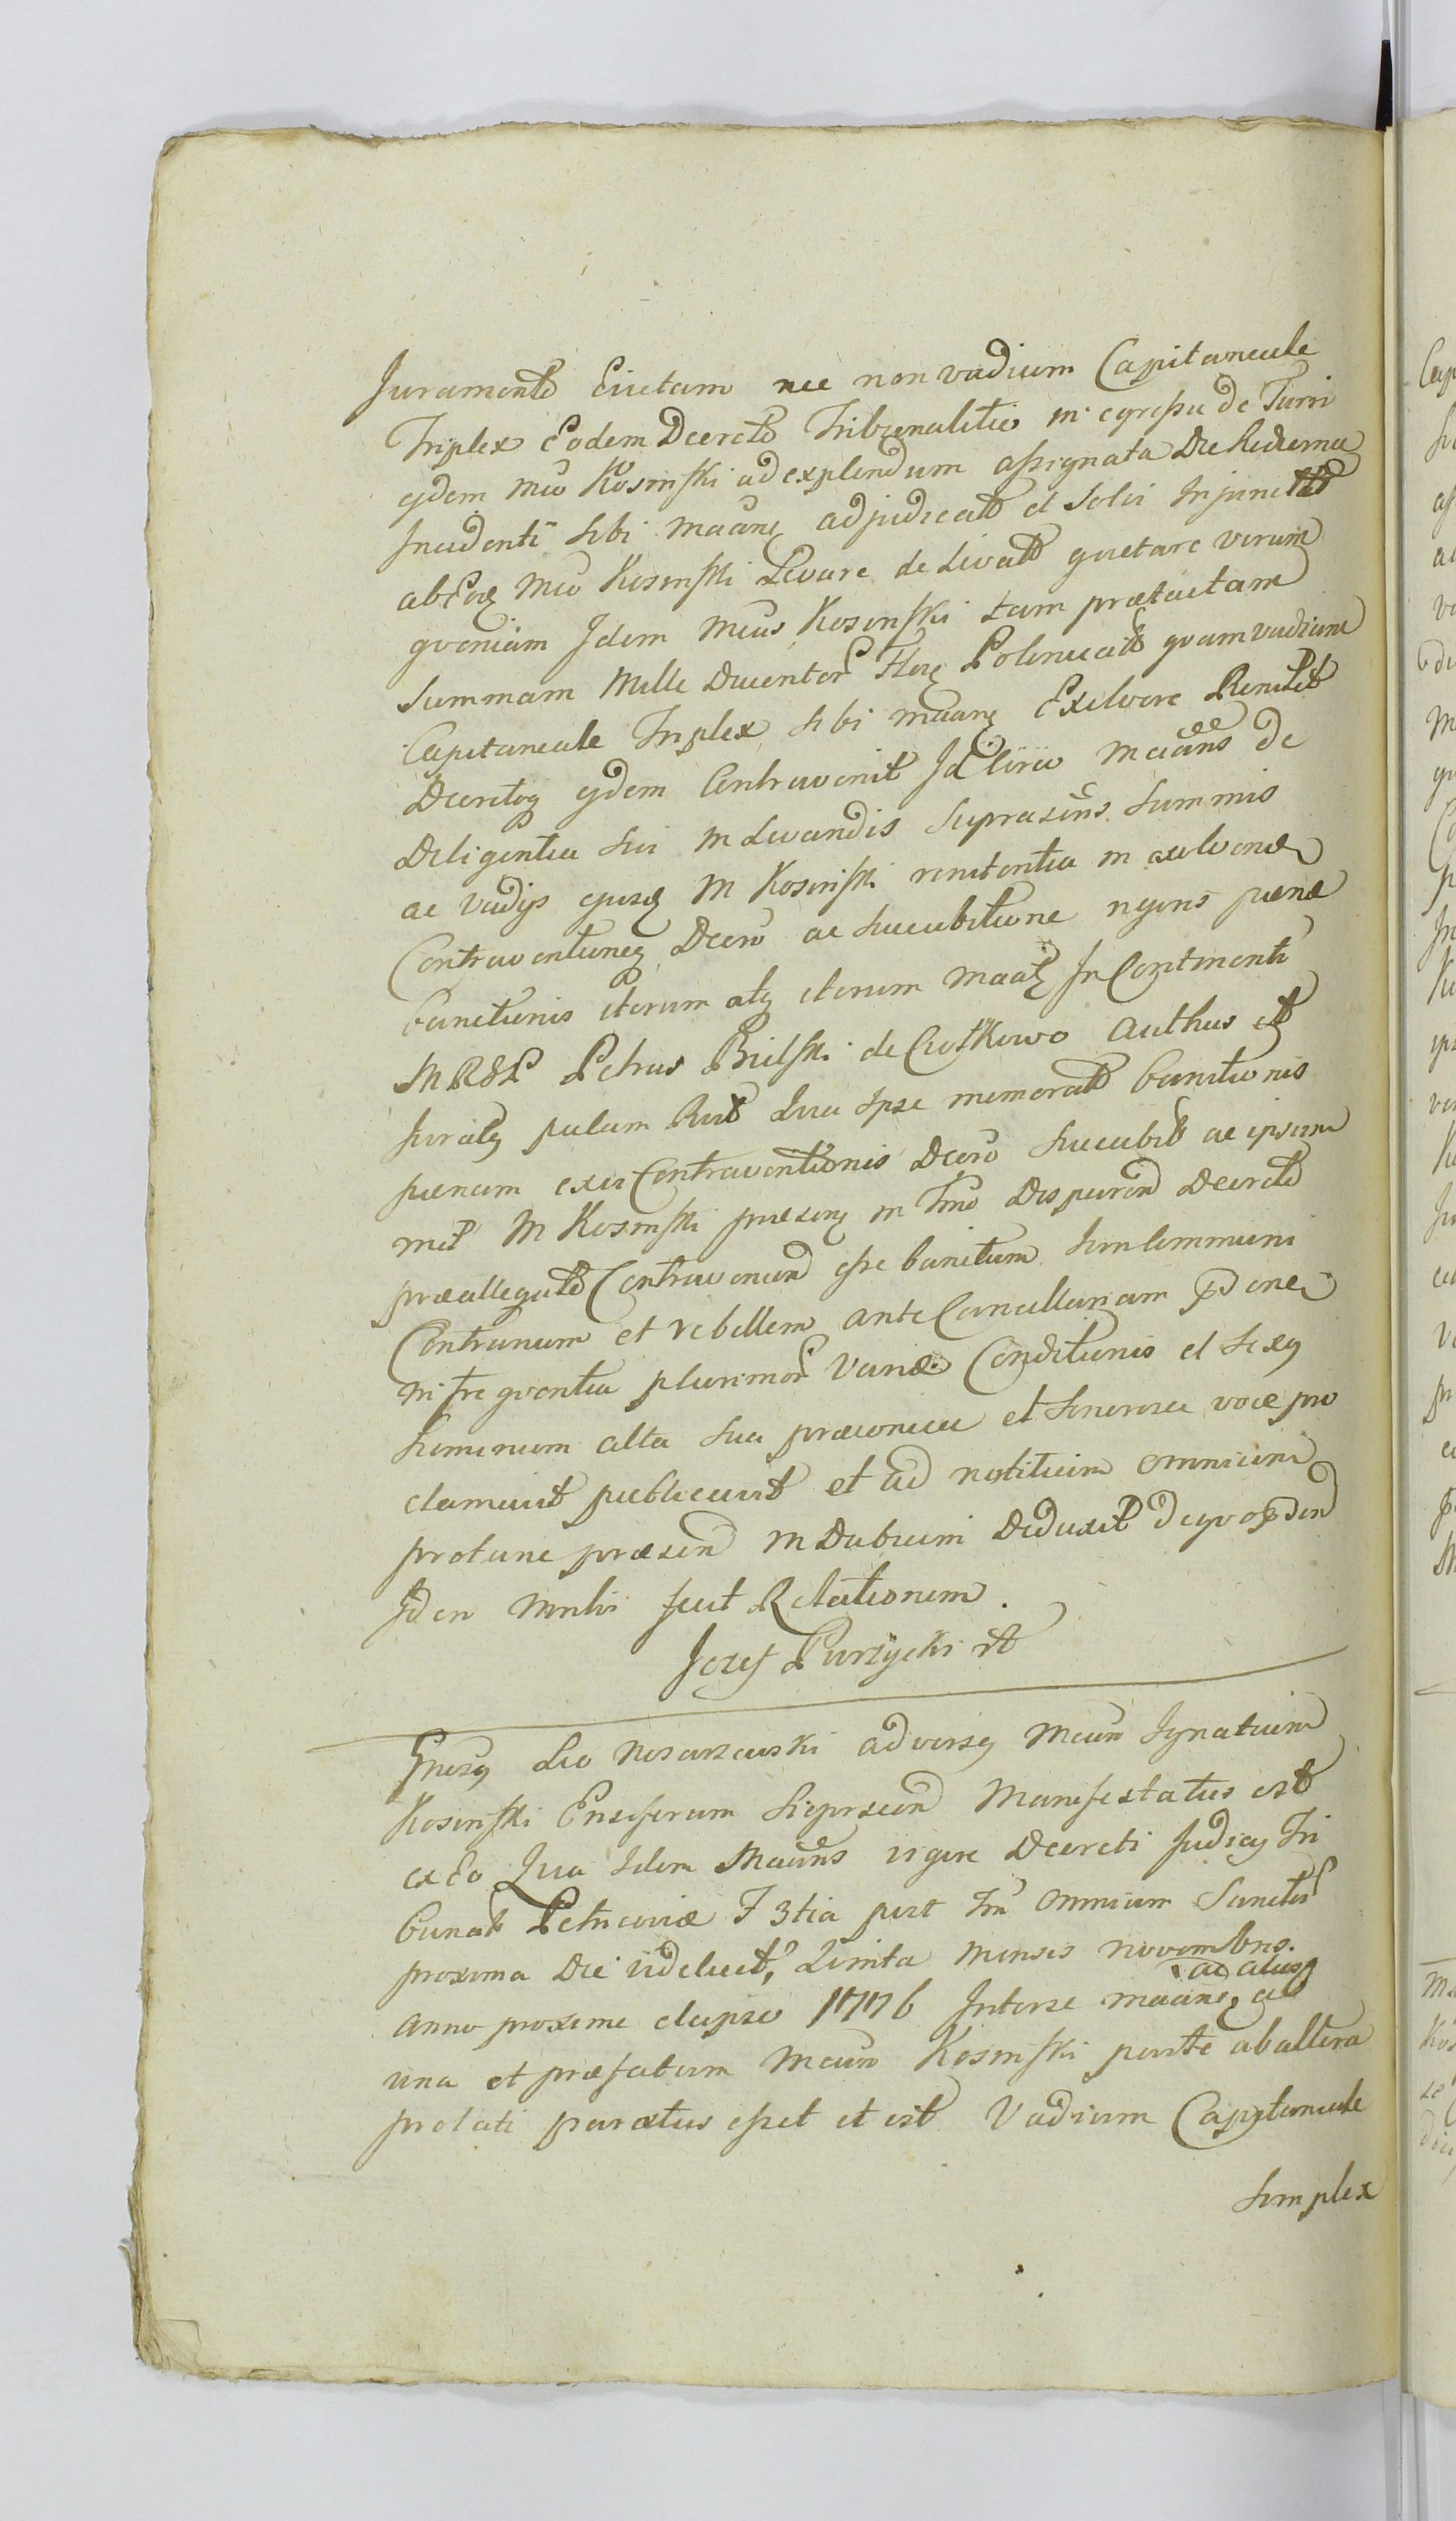 Juramento Evictam nec non vadium Capitaneale
Triplex eodem Decreto Tribunalitio in egressu de Turri
ejdem Mco Kosinski ad explendum assignata Die hodierna
Incidenti sibi Maane adjudicato et solvi Injuncto
ab eodem Mco Kosinski Levare de Levato quietare verum
quoniam Idem Mcus Kosinski tam praetactam
Summam Mille Ducentor Flor Polonical quam vadium
Capitaneale Triplex sibi Maane Exolvere Renuit
Decretoq ejdem Contravenit Id circo Maans de
Diligentia sui in Levandis suprascris Summis
ac Vadijs ejusq M Kosinski renitentia in exolvene
Contraventioneq Decro ac succubitione rigoris paenae
banitionis iterum atq iterum Maat In Continenti
M R G P Petrus Bielski de Ciotkowo Authus et
Juratq palam Rvit Qua ipse memorato banitionis
paenam ex vi Contraventionis Decro succubit ac ipsum
met M Kosinski praesens in Tno Disparend Decreto
praeallegato Contravenien esse banitum
Contrarium et rebellem ante Cancellariam psene
in frequentia plurimor Variae Conditionis et sexq
hominum alta sua praeconica et sonorosa voce pro
clamavit publicavit et ad notitiam omnium
protunc praesen in Dubium Deduxit de quo psen
Iden fecit Relationem.
Jozef Purzycki
Gnrsq Leo Nosarzewski adversq Mcum Ignatium
Kosinski Ensiferum Sieprscen Manifestatus est
ex Eo Qua Idem Maans vigore Decreti Judicy Tri
bunal Petricoviae F 3tia post Fm Omnium Sanctor
proxima Die videlicet, Quinta Mensis novembris
anno proxime elapso 1776 Inter se Maane, ac
ac alias
una et praefatum Mcum Kosinski parte ab altera
prolati paratus esset et est Vadium Capitaneale
Simplex